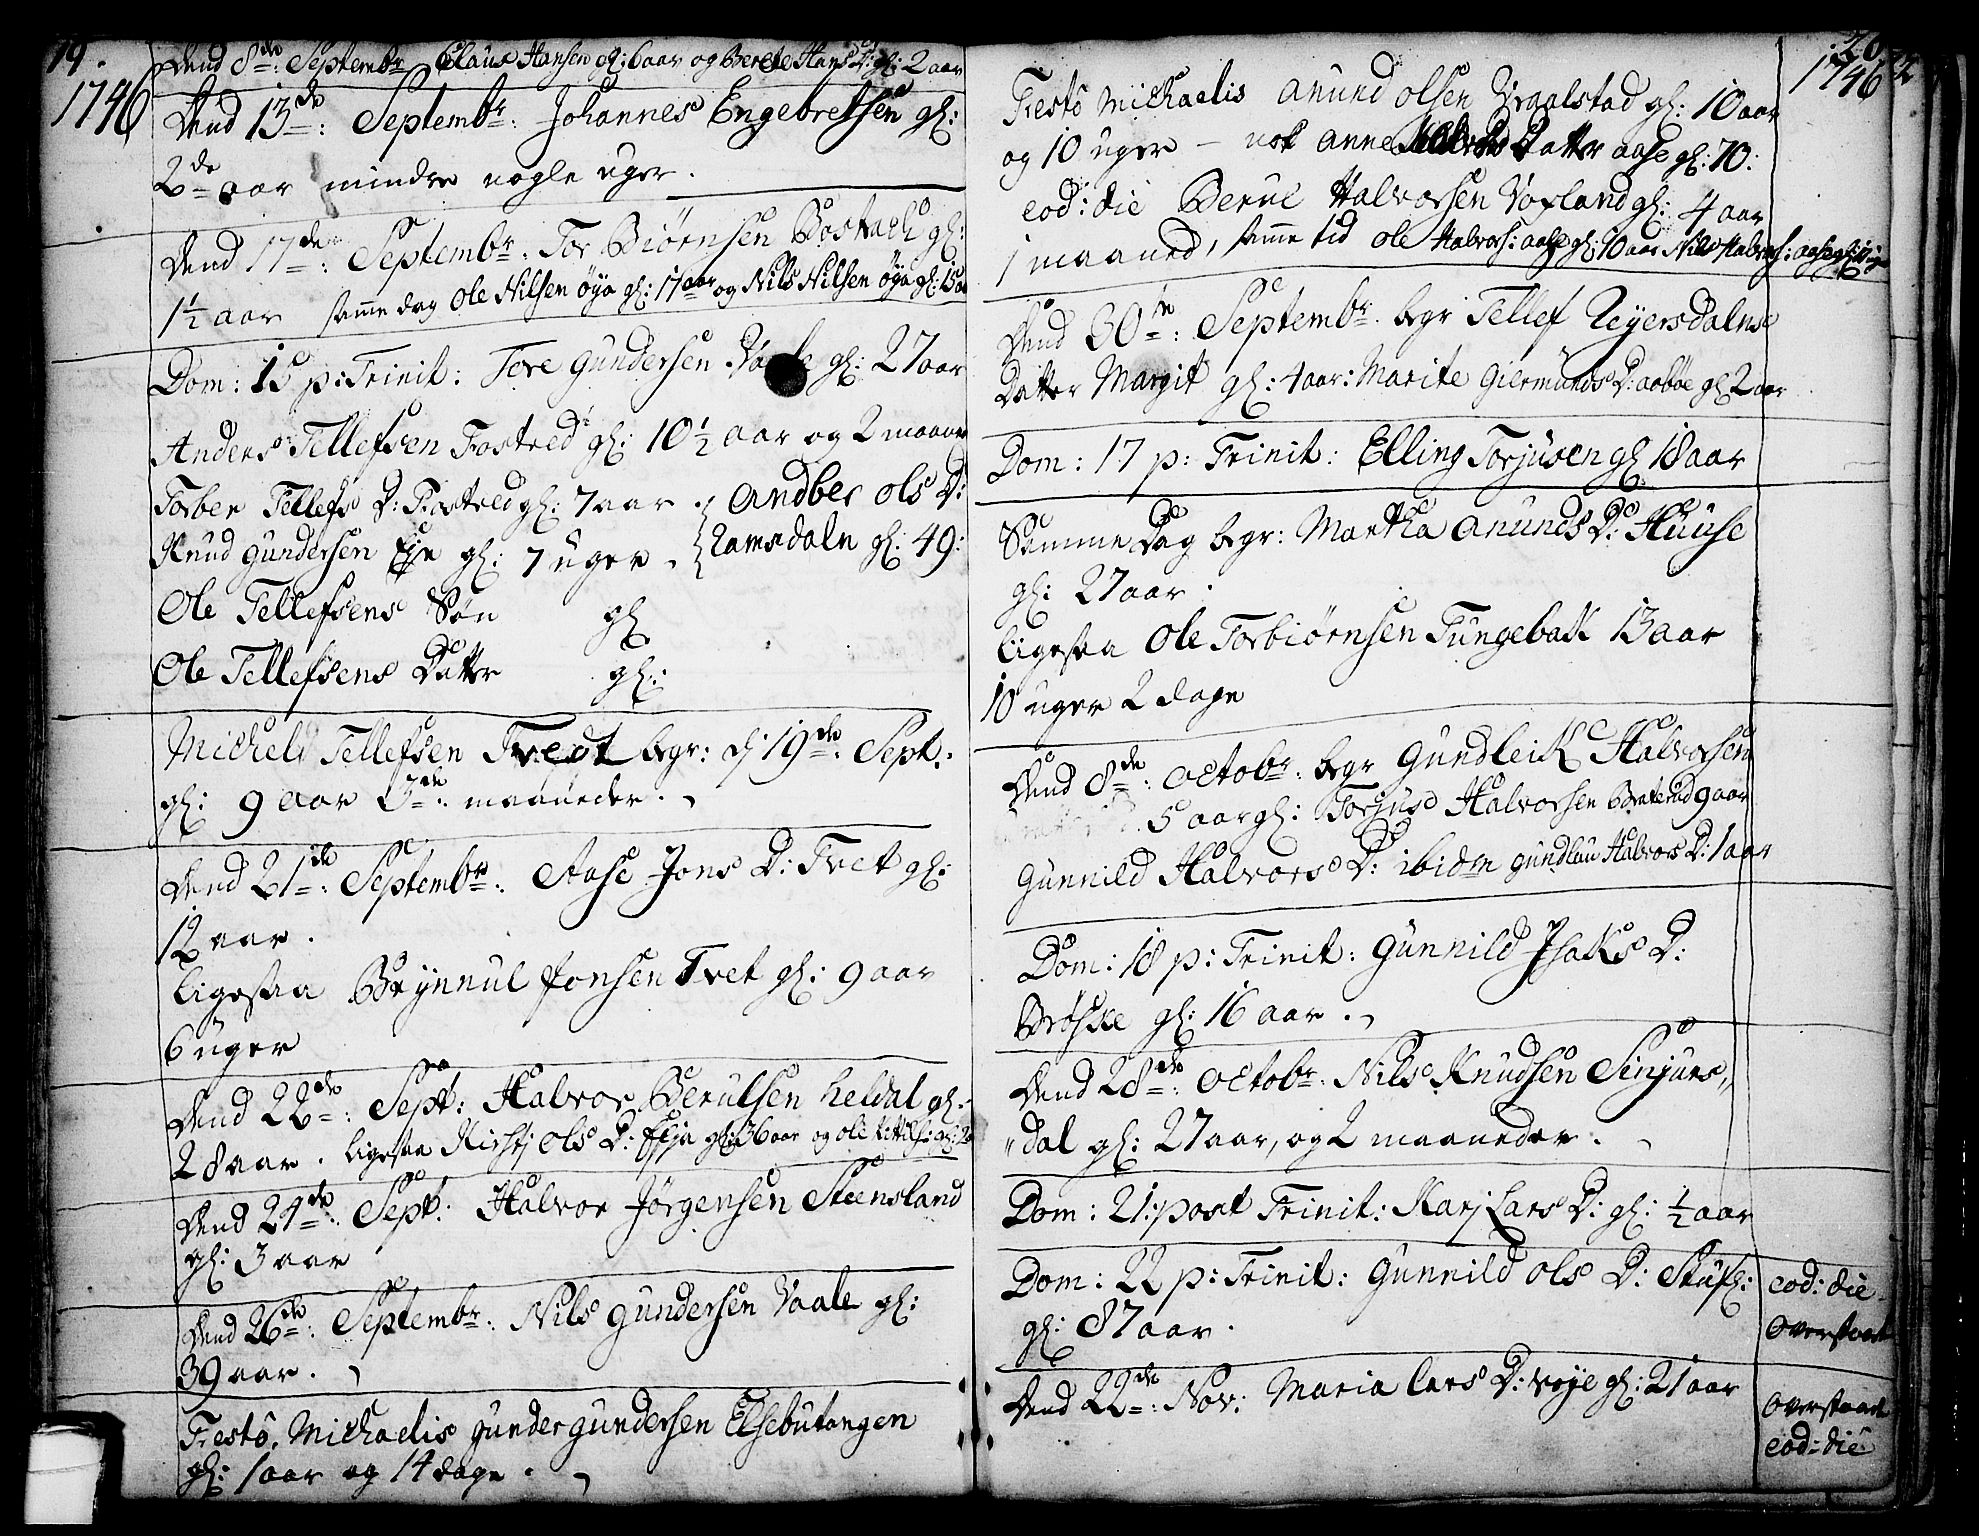 19.
1746
Dend 8de: Septembr Claus Hansen gl: 6 aar og Berete Hans D: gl: 2 aar
Dend 13de: Septembr: Johannes Engebretsen gl:
2de aar mindre nogle uger.
Dend 17de: Septembr: Tor Biørnsen Bostrach gl:
1½ aar samme dag Ole Nilsen øya gl: 17 aar og Nils Nilsen øya gl: 15 aar
Dom: 15 p: Trinit: Tore Gundersen gl: 27 aar
Anders Tellefsen Fostved gl: 10½ aar og 2 maaner
Torber Tellefs D: Fostved gl: 7 aar. Andber Ols D:
Knud Gundersen Eje gl: 7 uger. Ramsdaln gl: 49:
Ole Tellefsens Søn gl:
Ole Tellefsens Datter gl:
Micheld Tellefsen Tvedt bgr: d: 19de: Sept:
gl: 9 aar 3de: maaneder.
Dend 21de: Septembr: Aase Jons D: Tvet gl:
12 aar.
ligesaa Brynnul Jonsen Tvet gl: 9 aar
6 uger
Dend 22de: Sept: Halvor Berulsen heldal gl:
28 aar. ligesaa Kirstj Ols D: Eja gl: 36 aar og Ole
Dend 24de: Sept: Halvor Jørgensen Steensland
gl: 3 aar
Dend 26de: Septembr: Nils Gundersen Vaale gl:
39 aar.
Festô Michaelis Gunder Gundersen Elsebutangen
gl: 1 aar og 14 dage.
20
1746
Festô Michaelis Anund Olsen Vraalstad gl: 10 aar
og 10 uger - nok Anne Datter aase gl: 70:
eod: die Berul Halvorsen Voxland gl: 4 aar
1 maaned, samme tid Ole Halvors: aase gl: 10 aar Nils Halvors: aase gl:
Dend 30te: Septembr. bgr Tellef Reyersdalns
Datter Margit gl: 4 aar: Marite Giermunds D: aabøe gl 2 aar
Dom: 17 p: Trinit: Elling Torjusen gl 18 aar
Samme Dag bgr: Martha Anunds D: Huuse
gl: 27 aar.
ligesaa Ole Torbiørnsen Tungebakk 13 aar
10 uger 2 dage
Dend 8de: Octobr: bgr Gundleik Halvorsen
5 aar gl: Torjus Halvorsen Braterud 9 aar
Gunnild Halvors D: ibidm Gundlau Halvors D: 1 aar
Dom: 18 p: Trinit: Gunnild Isaks D:
Brøske gl: 16 aar.
Dend 28de: Octobr: Nils Knudsen Sinjurs„
„dal gl: 27 aar, og 2 maaneder.
Dom: 21: post Trinit: Karj Lars D: gl: ½ aar
Dom: 22 p: Trinit: Gunnild Ols D:
gl: 87 aar.
eod: die
Overstaaet
Dend 22de: Nov: Maria Lars D: vøje gl: 21 aar
Overstaaet
eod: die